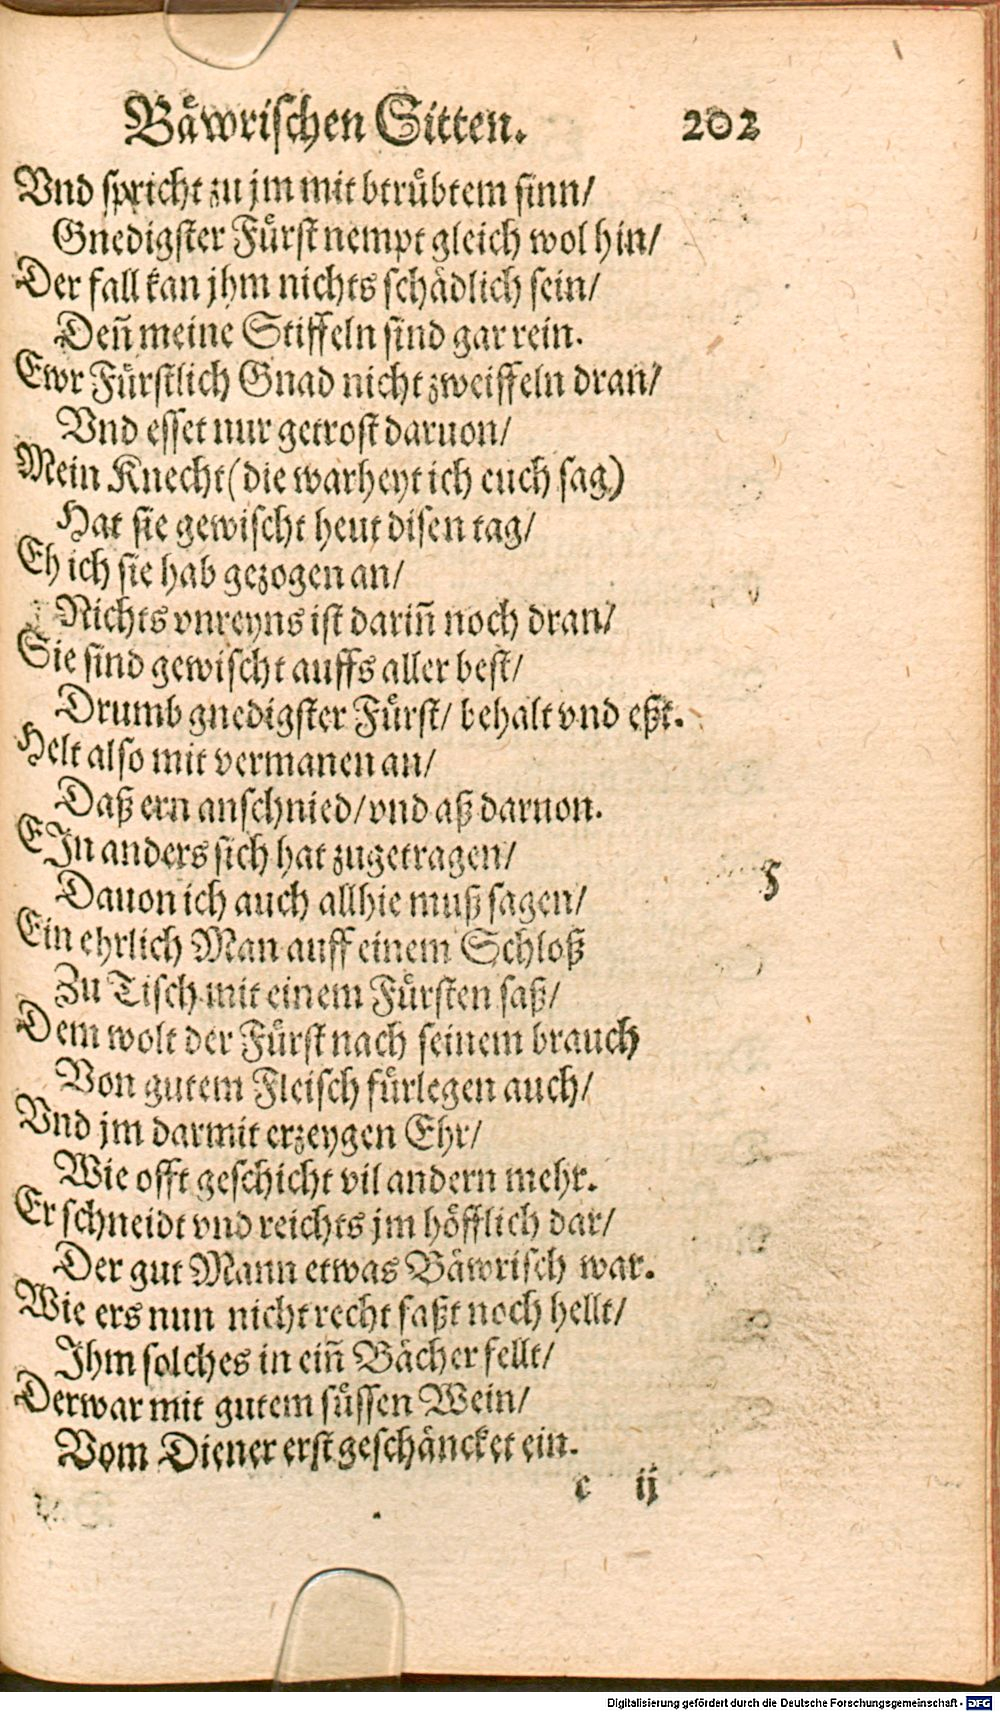 Båwrischen Sitten. 202
Vnd spricht zu jm mit btrübtem sinn/
Gnedigster Fürst nempt gleich wol hin/
Der fall kan jhm nichts schädlich sein/
Deñ meine Stiffeln sind gar rein.
Ewr Fürstlich Gnad nicht zweiffeln dran/
Vnd esset nur getrost daruon/
Mein Knecht (die warheyt ich euch sag)
Hat sie gewischt heut disen tag/
Eh ich sie hab gezogen an/
Nichts vnreyns ist dariñ noch dran/
Sie sind gewischt auffs aller best/
Drumb gnedigster Fürst/ behalt vnd eßt.
Helt also mit vermanen an/
Daß ern anschnied/ vnd aß daruon.
EJn anders sich hat zugetragen/
Dauon ich auch allhie muß sagen/
Ein ehrlich Man auff einem Schloß
Zu Tisch mit einem Fürsten saß/
Dem wolt der Fürst nach seinem brauch
Von gutem Fleisch fürlegen auch/
Vnd jm darmit erzeygen Ehr/
Wie offt geschicht vil andern mehr.
Er schneidt vnd reichts jm höfflich dar/
Der gut Mann etwas Bäwrisch war.
Wie ers nun nicht recht faßt noch hellt/
Ihm solches in eiñ Bächer fellt/
Der war mit gutem süssen Wein/
Vom Diener erst geschäncket ein.
c ij
Digitalisierung gefördert durch die Deutsche Forschungsgemeinschaft - DFG